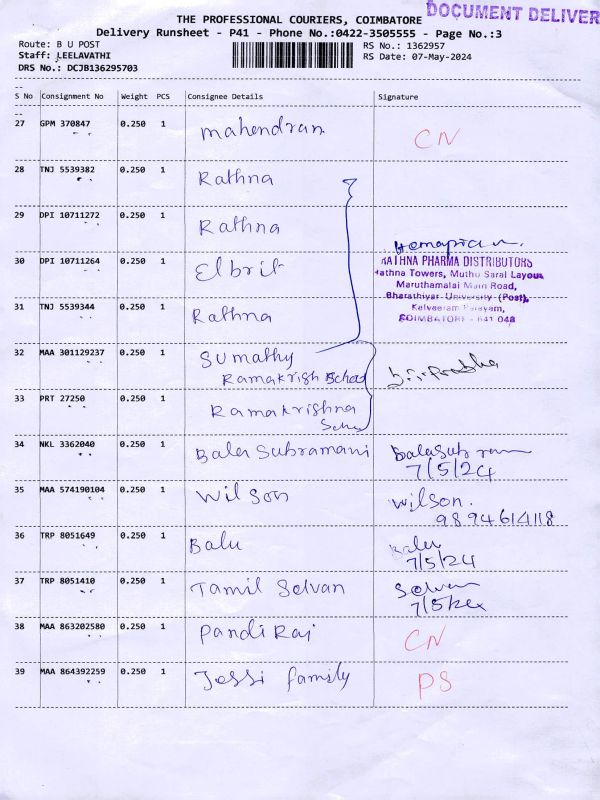 DOCUMENT DELIVER
THE PROFESSIONAL COURIERS, COIMBATORE
Delivery Runsheet - P41 - Phone No.:0422-3505555 - Page No.:3
Route: B U POST
RS No.: 1362957
Staff: LEELAVATHI
RS Date: 07-May-2024
DRS No.: DCJB136295703
S No Consignment No Weight PCS Consignee Details Signature
27 GPM 370847 0.250 1 Mahendran CN
28 TNJ 5539382 0.250 1 Rathna
29 DPI 10711272 0.250 1 Rathna
30 DPI 10711264 0.250 1 Elbrit
RATHNA PHARMA DISTRIBUTORS
Rathna Towers, Muthu Saral Layout
Maruthamalai Main Road,
Bharathiyar University (Post),
COIMBATORE - 641 046
31 TNJ 5539344 0.250 1 Rathna
32 MAA 301129237 0.250 1 Sumathy
Ramakrish School
33 PRT 27250 0.250 1 Ramakrishna
34 NKL 3362040 0.250 1 Bala Subramani
7/5/24
35 MAA 574190104 0.250 1 Wilson Wilson.
9894614118
36 TRP 8051649 0.250 1 Balu Balu
7/5/24
37 TRP 8051410 0.250 1 Tamil Selvan Selvan
38 MAA 863202580 0.250 1 Pandi Raj CN
39 MAA 864392259 0.250 1 Jessi family PS